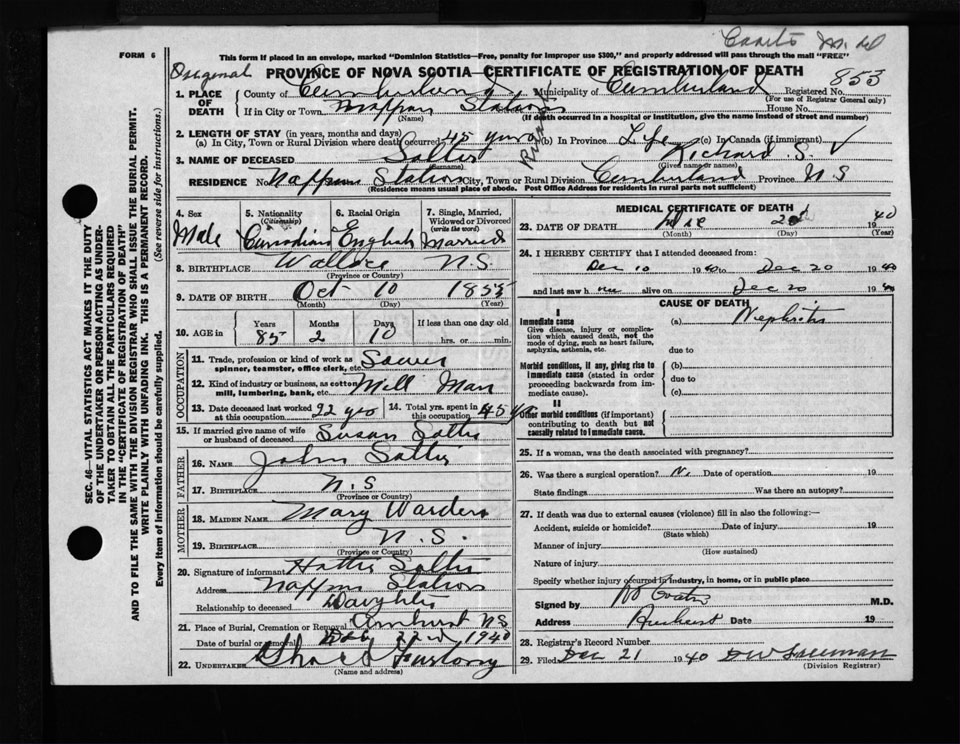 M.D.
FORM 6
This form if placed in an envelope, marked "Dominion Statistics—Free, penalty for improper use $300," and properly addressed will pass through the mail "FREE"
Original PROVINCE OF NOVA SCOTIA—CERTIFICATE OF REGISTRATION OF DEATH 853
1. PLACE OF DEATH County of Cumberland Municipality of Cumberland Registered No.
(For use of Registrar General only)
If in City or Town Nappan Station House No.
(Name) (If death occurred in a hospital or institution, give the name instead of street and number)
2. LENGTH OF STAY (in years, months and days)
(a) In City, Town or Rural Division where death occurred 45 years (b) In Province Life (c) In Canada (if immigrant)
3. NAME OF DECEASED Salter Richard S.
(Surname) (Given name or names)
RESIDENCE No. Nappan Station City, Town or Rural Division Cumberland Province N S
(Residence means usual place of abode. Post Office Address for residents in rural parts not sufficient)
4. Sex 5. Nationality (Citizenship) 6. Racial Origin 7. Single, Married, Widowed or Divorced (write the word)
Male Canadian English Married
8. BIRTHPLACE Wallace N.S.
(Province or Country)
9. DATE OF BIRTH Oct 10 1855
(Month) (Day) (Year)
10. AGE in Years Months Days If less than one day old
85 2 10 hrs. or min.
OCCUPATION
11. Trade, profession or kind of work as spinner, teamster, office clerk, etc. Sawer
12. Kind of industry or business, as cotton mill, lumbering, bank, etc. Mill Man
13. Date deceased last worked at this occupation 22 yrs 14. Total yrs. spent in this occupation 45 yrs
15. If married give name of wife or husband of deceased Susan Salter
FATHER
16. NAME John Salter
17. BIRTHPLACE N.S
(Province or Country)
MOTHER
18. MAIDEN NAME Mary Warden
19. BIRTHPLACE N.S.
(Province or Country)
20. Signature of informant Hattie Salter
Address Nappan Station
Relationship to deceased Daughter
21. Place of Burial, Cremation or Removal Amherst N S
Date of burial or removal 22nd 1940
22. UNDERTAKER
(Name and address)
MEDICAL CERTIFICATE OF DEATH
23. DATE OF DEATH Dec 20th 1940
(Month) (Day) (Year)
24. I HEREBY CERTIFY that I attended deceased from:
Dec 10 1940 to Dec 20 1940
and last saw h alive on Dec 20 1940
CAUSE OF DEATH
I
Immediate cause (a) Nephritis
Give disease, injury or complication which caused death, not the mode of dying, such as heart failure, asphyxia, asthenia, etc.
due to
Morbid conditions, if any, giving rise to immediate cause (stated in order proceeding backwards from immediate cause).
(b)
due to
(c)
II
Other morbid conditions (if important) contributing to death but not causally related to immediate cause.
25. If a woman, was the death associated with pregnancy?
26. Was there a surgical operation? N. Date of operation 19
State findings Was there an autopsy?
27. If death was due to external causes (violence) fill in also the following:—
Accident, suicide or homicide? Date of injury 19
(State which)
Manner of injury
(How sustained)
Nature of injury
Specify whether injury occurred in industry, in home, or in public place
Signed by M.D.
Address Amherst Date 19
28. Registrar's Record Number
29. Filed Dec 21 1940
(Division Registrar)
SEC. 46—VITAL STATISTICS ACT MAKES IT THE DUTY
OF THE UNDERTAKER OR PERSON ACTING AS UNDER-
TAKER TO OBTAIN ALL THE PARTICULARS REQUIRED
IN THE "CERTIFICATE OF REGISTRATION OF DEATH"
AND TO FILE THE SAME WITH THE DIVISION REGISTRAR WHO SHALL ISSUE THE BURIAL PERMIT.
WRITE PLAINLY WITH UNFADING INK. THIS IS A PERMANENT RECORD.
Every item of information should be carefully supplied. (See reverse side for instructions.)